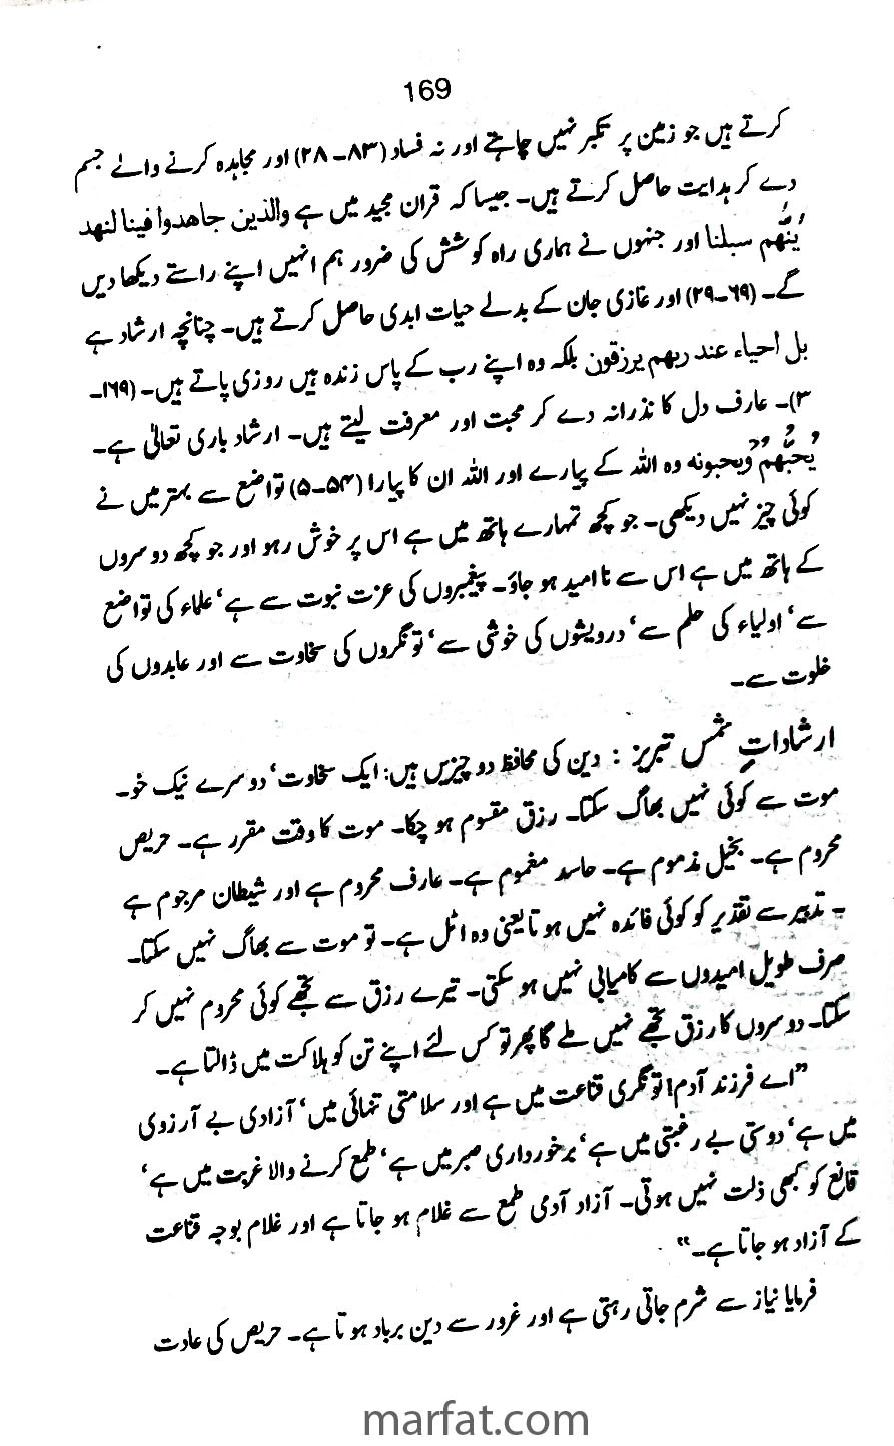 169
کرتے ہیں جو زمین پر تکبر نہیں چاہتے اور نہ فساد (۸۳۔۲۸) اور مجاہدہ کرنے والے جسم
دے کر ہدایت حاصل کرتے ہیں۔ جیسا کہ قران مجید میں ہے والذین جاھدوا فینا لنھد
ینّھم سبلنا اور جنہوں نے ہماری راہ کوشش کی ضرور ہم انہیں اپنے راستے دیکھا دیں
گے۔ (۶۹۔۲۹) اور غازی جان کے بدلے حیات ابدی حاصل کرتے ہیں۔ چنانچہ ارشاد ہے
بل احیاء عند ربھم یرزقون بلکہ وہ اپنے رب کے پاس زندہ ہیں روزی پاتے ہیں۔ (۱۶۹۔
۳)۔ عارف دل کا نذرانہ دے کر محبت اور معرفت لیتے ہیں۔ ارشاد باری تعالیٰ ہے۔
یُحبُّھُم وُیحبونہ وہ اللہ کے پیارے اور اللہ ان کا پیارا (۵۴۔۵) تواضع سے بہتر میں نے
کوئی چیز نہیں دیکھی۔ جو کچھ تمہارے ہاتھ میں ہے اس پر خوش رہو اور جو کچھ دوسروں
کے ہاتھ میں ہے اس سے ناامید ہو جاؤ۔ پیغمبروں کی عزت نبوت سے ہے‘ علماء کی تواضع
سے‘ اولیاء کی حلم سے‘ درویشوں کی خوشی سے‘ تونگروں کی سخاوت سے اور عابدوں کی
خلوت سے۔
ارشاداتِ شمس تبریز : دین کی محافظ دو چیزیں ہیں: ایک سخاوت‘ دوسرے نیک خو۔
موت سے کوئی نہیں بھاگ سکتا۔ رزق مقسوم ہو چکا۔ موت کا وقت مقرر ہے۔ حریص
محروم ہے۔ بخیل مذموم ہے۔ حاسد مغموم ہے۔ عارف محروم ہے اور شیطان مرجوم ہے
۔ تدبیر سے تقدیر کو کوئی فائدہ نہیں ہوتا یعنی وہ اٹل ہے۔ تو موت سے بھاگ نہیں سکتا۔
صرف طویل امیدوں سے کامیابی نہیں ہو سکتی۔ تیرے رزق سے تجھے کوئی محروم نہیں کر
سکتا۔ دوسروں کا رزق تجھے نہیں ملے گا پھر تو کس لئے اپنے تن کو ہلاکت میں ڈالتا ہے۔
”اے فرزند آدم! تونگری قناعت میں ہے اور سلامتی تنہائی میں‘ آزادی بے آرزوی
میں ہے‘ دوستی بے رغبتی میں ہے‘ برخورداری صبر میں ہے‘ طمع کرنے والا غربت میں ہے‘
قانع کو کبھی ذلت نہیں ہوتی۔ آزاد آدی طمع سے غلام ہو جاتا ہے اور غلام بوجہ قناعت
کے آزاد ہو جاتا ہے۔“
فرمایا نیاز سے شرم جاتی رہتی ہے اور غرور سے دین برباد ہوتا ہے۔ حریص کی عادت
marfat.com